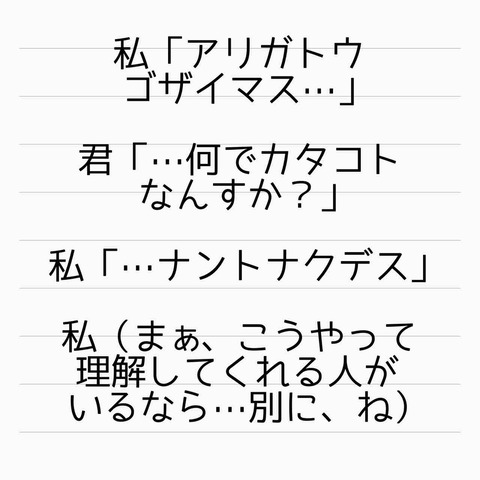 私「アリガトウ
ゴザイマス…」
君「…何でカタコト
なんすか？」
私「…ナントナクデス」
私（まぁ、こうやって
理解してくれる人が
いるなら…別に、ね）